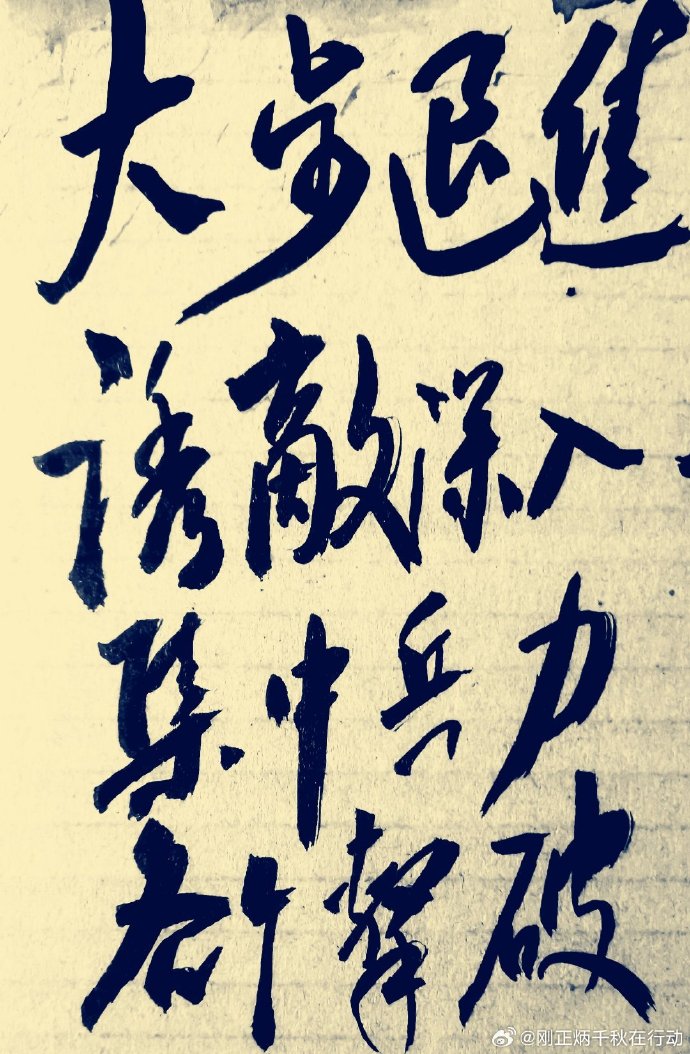 大步退進
誘敵深入
集中兵力
各个擊破
@刚正炳千秋在行动